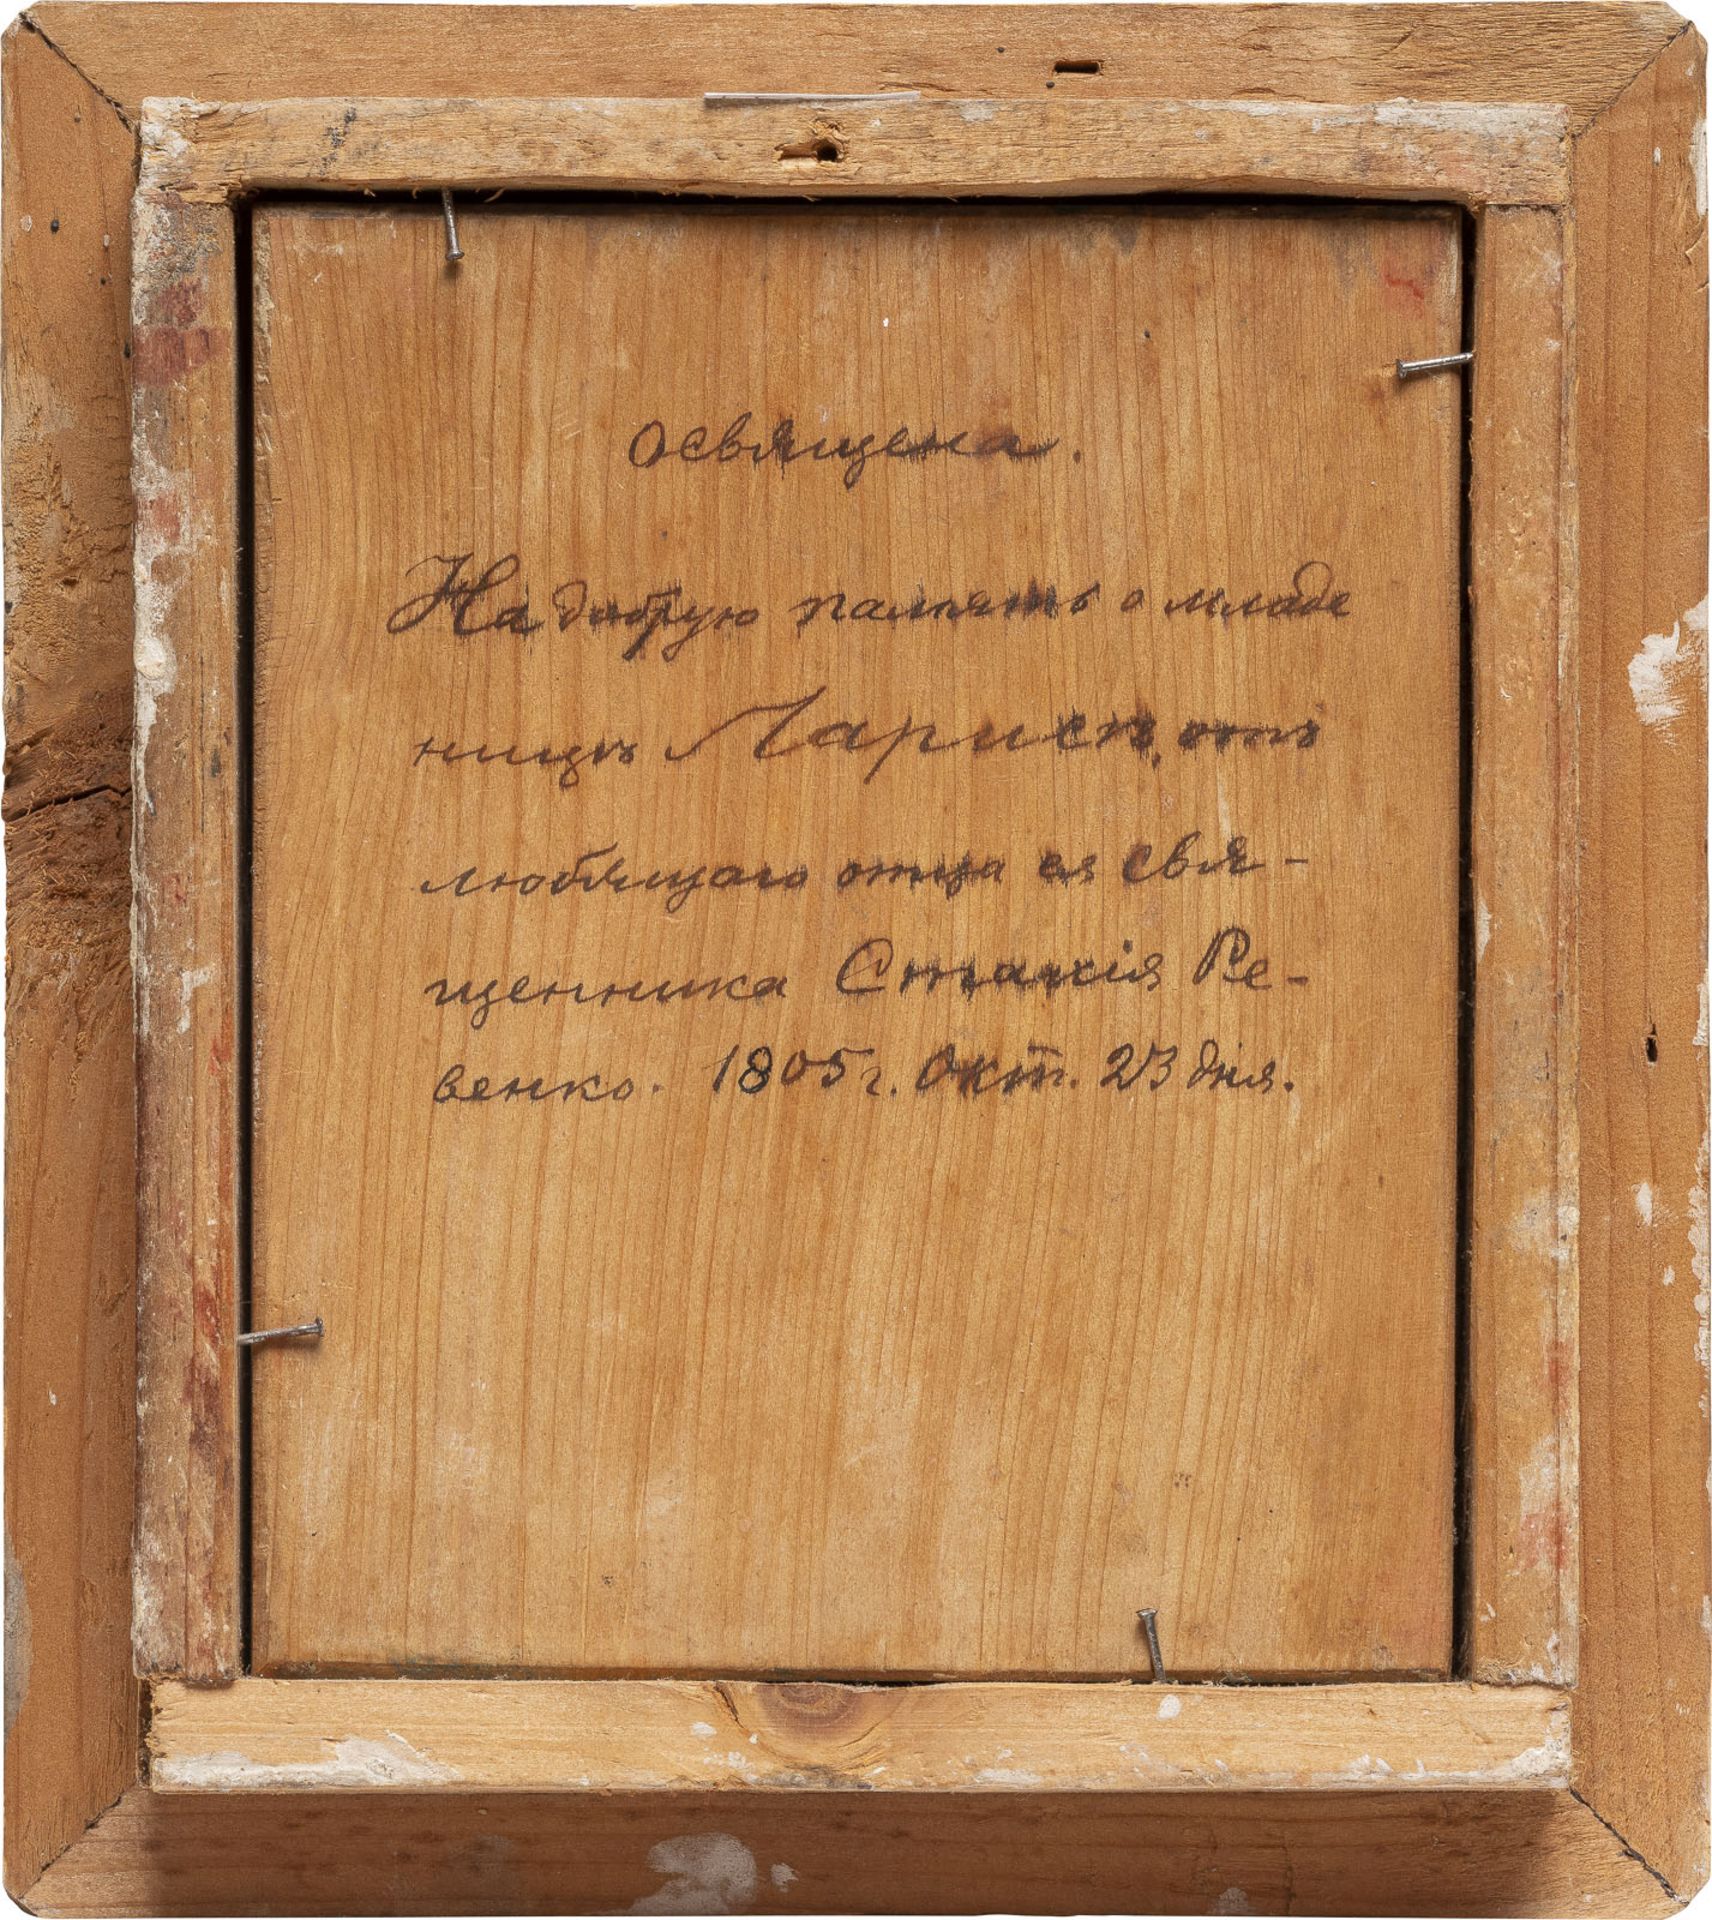 освящена.
На добрую память о младе
ницѣ Ларисѣ, отъ
любящаго отца ея свя-
щенника Стахія Ре-
венко. 1805 г. Окт. 23 дня.